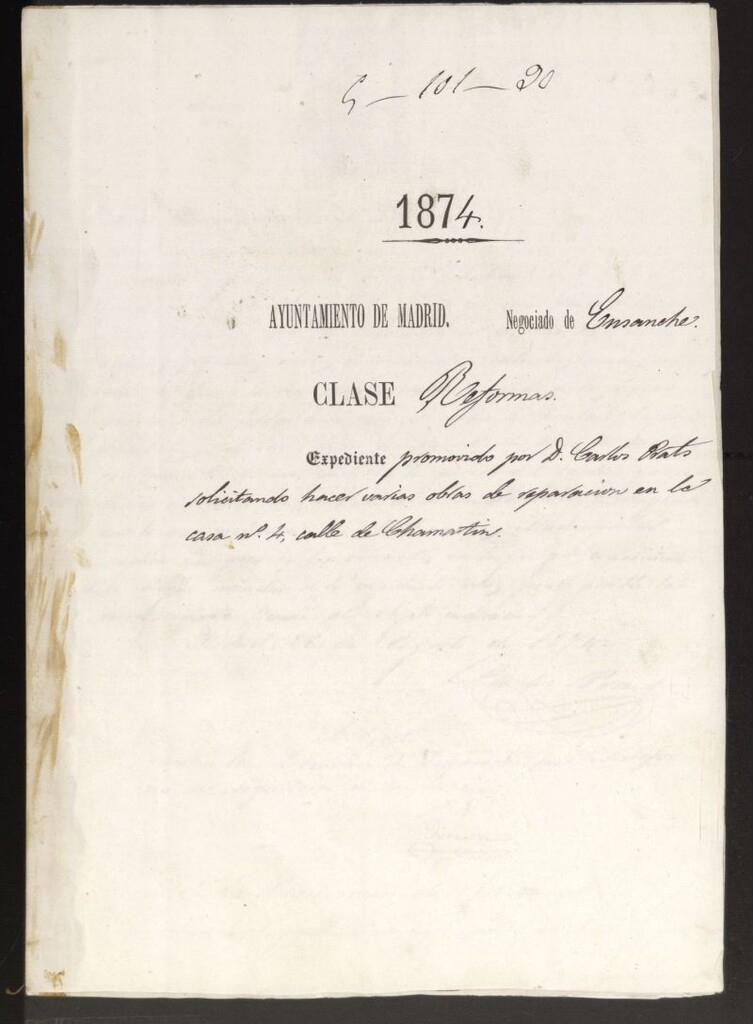 5 - 101 - 20
1874.
AYUNTAMIENTO DE MADRID. Negociado de Ensanche.
CLASE Reformas.
Expediente promovido por D. Carlos Prats
solicitando hacer varias obras de reparacion en la
casa nº. 4, calle de Chamartin.